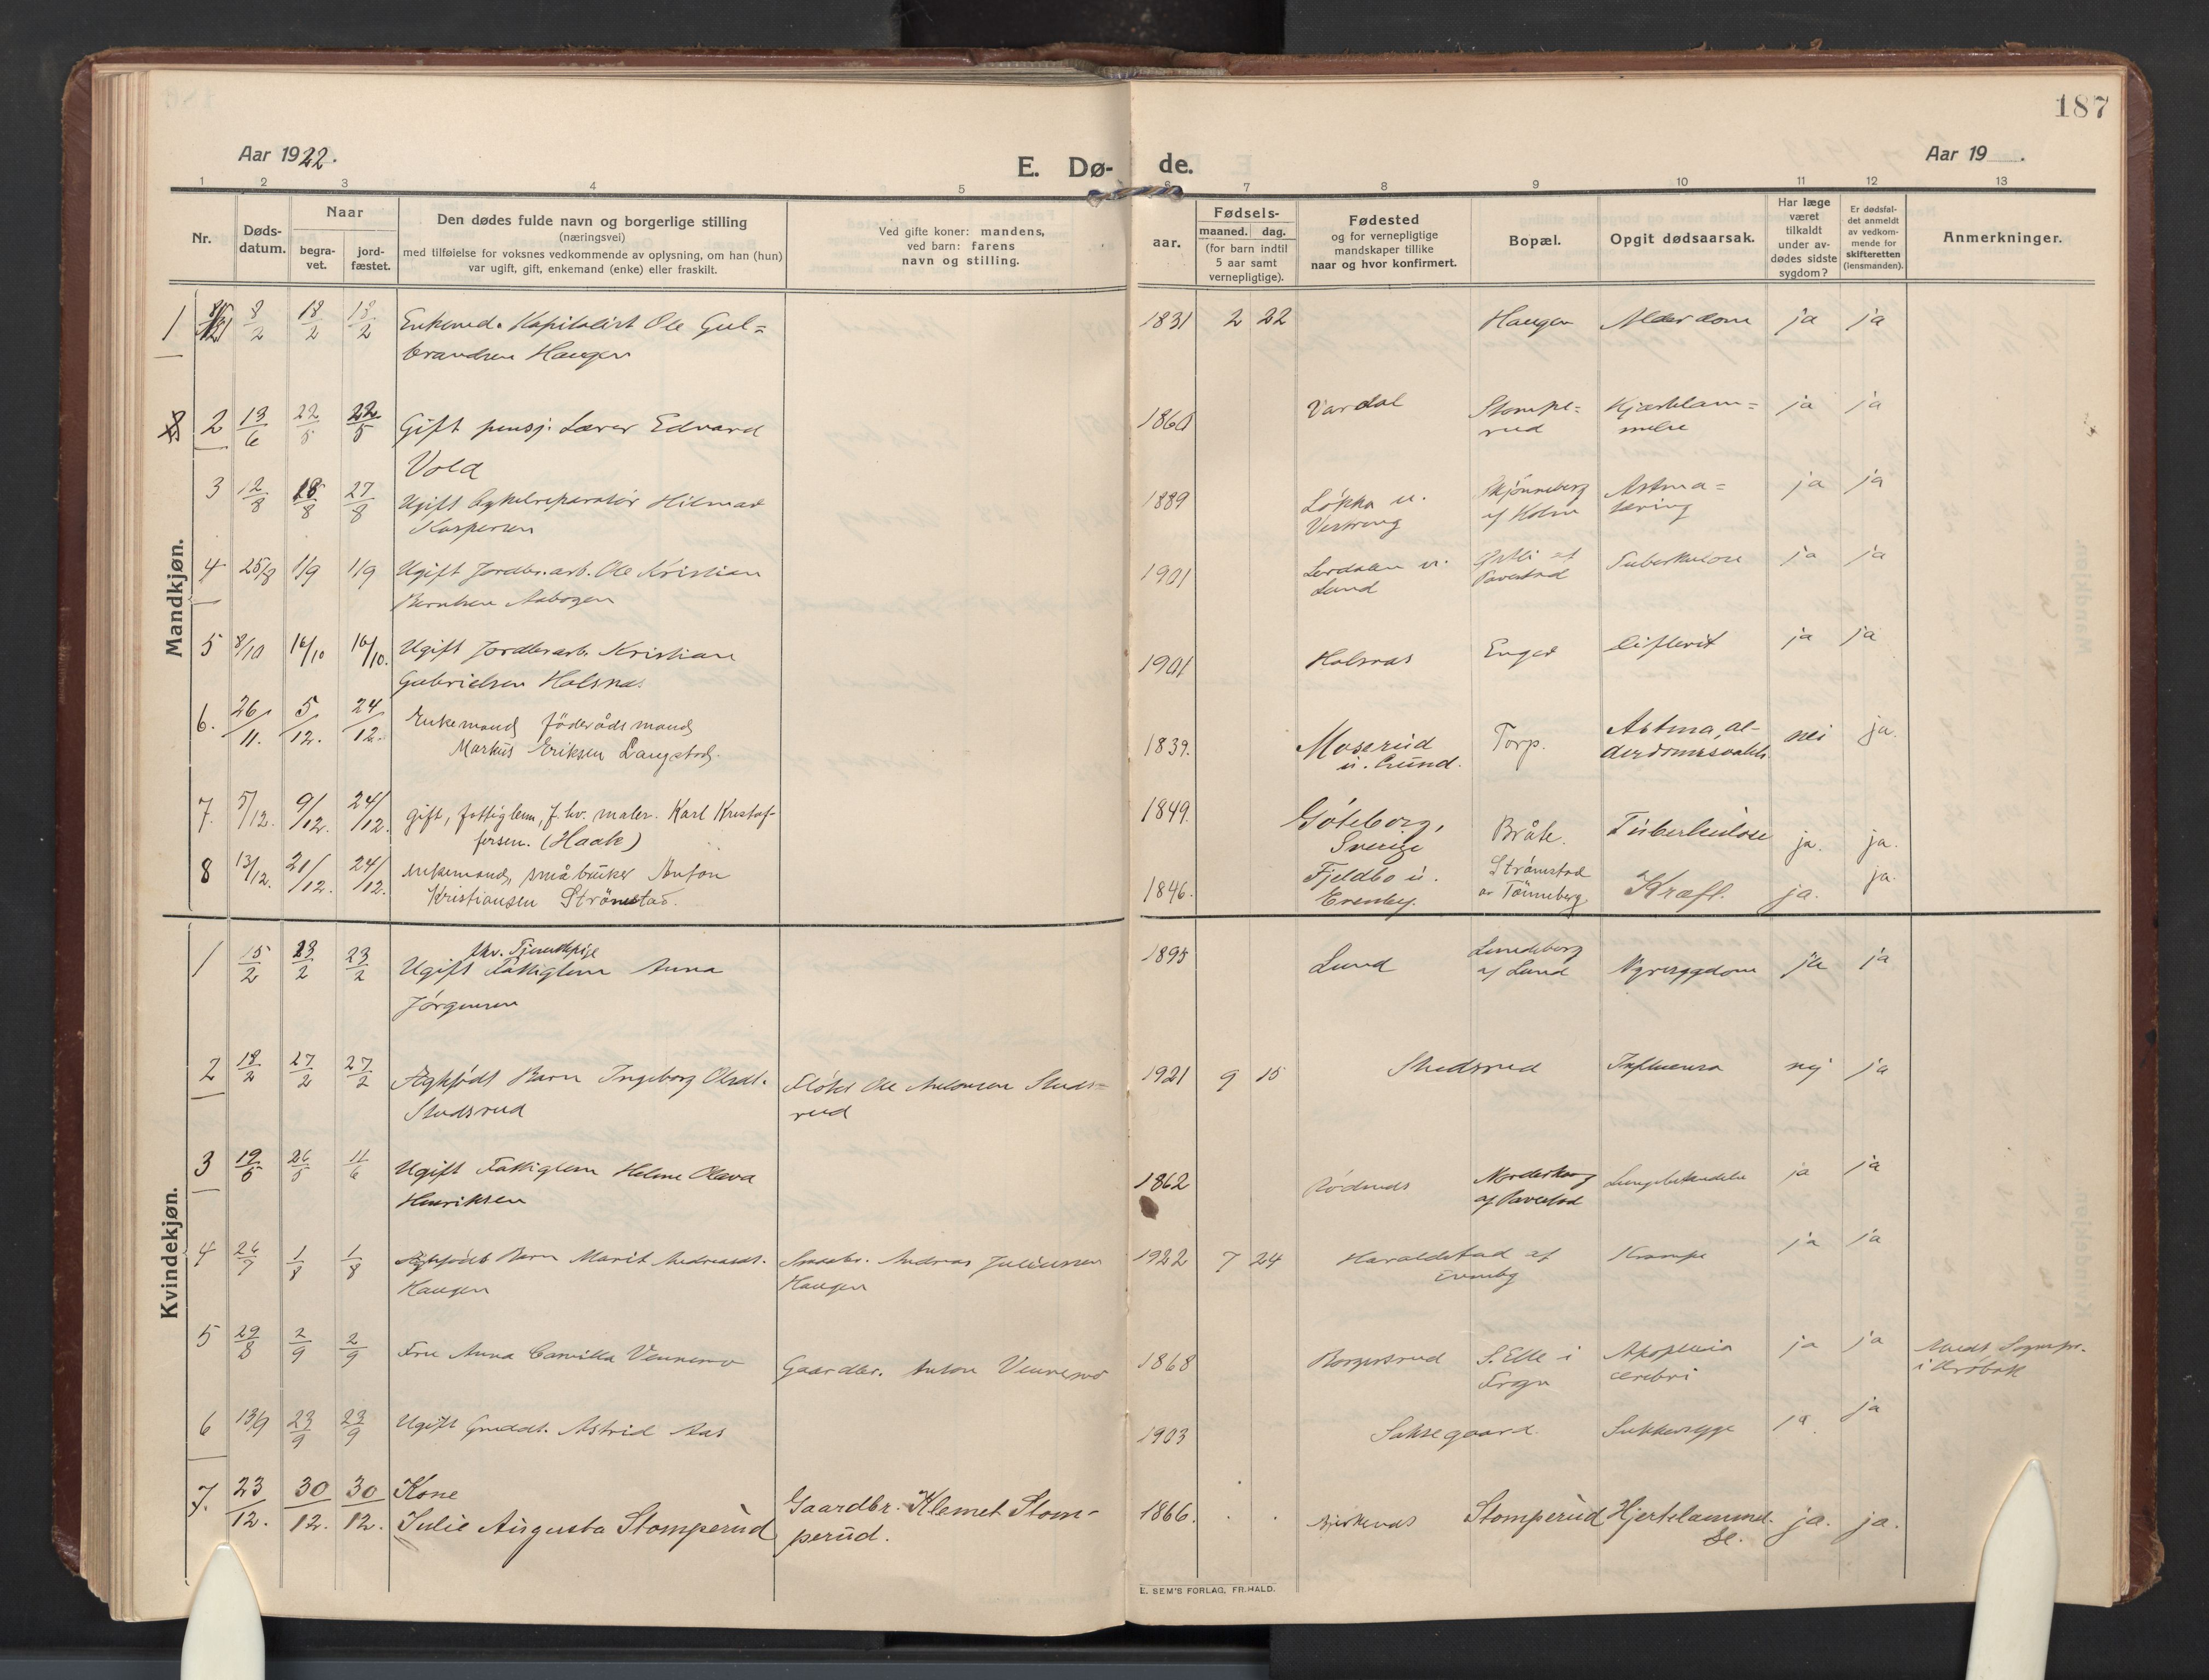 187
Aar 1922.
E. Dø- de.
Aar 19 .
1 2 3 4 5 6 7 8 9 10 11 12 13
Nr.
Døds-
datum.
Naar
begra-
vet.
jord-
fæstet.
Den dødes fulde navn og borgerlige stilling
(næringsvei)
med tilføielse for voksnes vedkommende av oplysning, om han (hun)
var ugift, gift, enkemand (enke) eller fraskilt.
Ved gifte koner: mandens,
ved barn: farens
navn og stilling.
aar.
Fødsels-
maaned. dag.
(for barn indtil
5 aar samt
vernepligtige).
Fødested
og for vernepligtige
mandskaper tillike
naar og hvor konfirmert.
Bopæl.
Opgit dødsaarsak.
Har læge
været
tilkaldt
under av-
dødes sidste
sygdom?
Er dødsfal-
det anmeldt
av vedkom-
mende for
skifteretten
(lensmanden).
Anmerkninger.
Mandkjøn.
1 8/2 18/2 18/2 Enkemd. Kapitalist Ole Gul= 1831 2 22 Haugen Alderdom ja ja
brandsen Haugen
2 13/6 22/5 22/5 Gift pensj. Lærer Edvard 1860 Vardal Stompe= Hjærtelam= ja ja
Vold rud melse
3 12/8 18/8 27/8 Ugift Cykelreparatør Hilmar 1889 Løkka u. Skjønneberg Astma= ja ja
Kaspersen Vestreng af Holm tæring
4 25/8 1/9 1/9 Ugift Jordbr.arb. Ole Kristian 1901 Lerdalen u. af Tuberkulose ja ja
Berntsen Aabogen Lund Tavestad
5 8/10 16/10 16/10. Ugift Jordbr.arb. Kristian 1901 Halsnas Enger Difterit ja ja
Gabrielsen Halsnas
6. 26/11. 5/12. 24/12. Enkemand föderådsmand 1839. Moserud Torp. Astma, al- nei ja.
Markus Eriksen Langstad. u. Grund. derdomssvakh.
7. 5/12. 9/12. 24/12. gift, fattiglem, f. hv. maler. Karl Kristof- 1849. Göteborg, Bråte. Tuberkulose ja. ja.
fersen. (Haak) Sverige
8 13/12. 21/12. 24/12. enkemand, småbruker Anton 1846. Fjeldbo u. Strömstad Kræft. ja. ja.
Kristiansen Strömstad. Evenby. av Tönneberg
Kvindekjøn.
fhv. Tjenestepige
1 15/2 23/2 23/2 Ugift Fattiglem Anna 1895 Lund Lundeborg Nyresygdom ja ja
Jørgensen af Lund
2 18/2 27/2 27/2 Ægtefødt Barn Ingeborg Olsdt. Fløter Ole Antonsen Studs= 1921 9 15 Studsrud Influensa nej ja
Studsrud rud
3 19/5 26/5 11/6 Ugift Fattiglem Helene Olava 1862 Rødenes Norderhaug Lungebetændelse ja ja
Henriksen af Tavestad
4 26/7 1/8 1/8 Ægtefødt Barn Marit Andreasdt. Smaabr. Andreas Juliussen 1922 7 24 Haraldstad af Krampe ja ja
Haugen Haugen Evenby
5 29/8 2/9 2/9 Fru Anna Camilla Vennemo Gaardbr. Anton Vennemo 1868 Borgersrud S. Elle i Apoplexia ja ja Medt. Sognepr.
Frogn cerebri i Drøbak
6 13/9 23/9 23/9 Ugift Grddt. Astrid Aas 1903 Saksegaard Sukkersyge ja ja
7. 23/12. 30/12. 30/12. Kone Gaardbr. Klemet Stom- 1866. Stomperud Hjertelammel- ja. ja.
Julie Augusta Stomperud perud. se.
E. SEM'S FORLAG, FR.HALD.